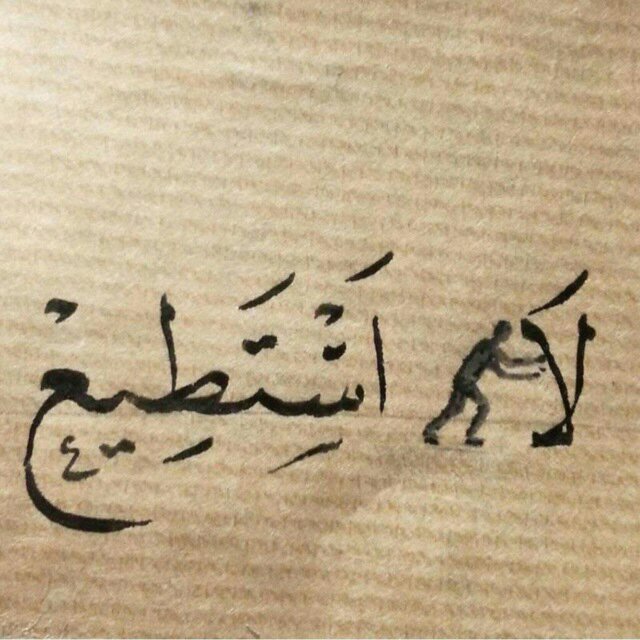 لَا اَسْتَطِيعُ